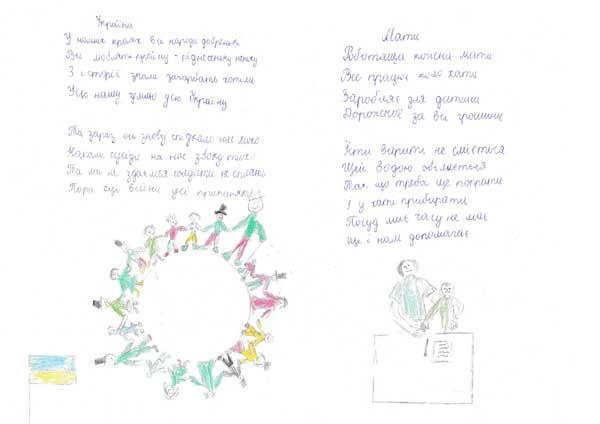 Україна
У наших краях всі народи добренькі
Всі люблять країну - ріднесеньку неньку
З історії знали загарбать хотіли
Усю нашу землю усю Україну
Та зараз ось знову спіткало нас лихо
Напали сусіди на нас з
Та ми не здаємся солдати не сплять
Пора сці війни усі припинять!
Мати
Роботяща кожна мати
Все працює коло хати
Заробляє для дитини
Дорожчої за всі грошини
Їсти варити не сміється
Щей водою обіллється
Так що треба ще попрати
І у хаті прибирати
Посуд миє часу не має
Ще і нам допомагає